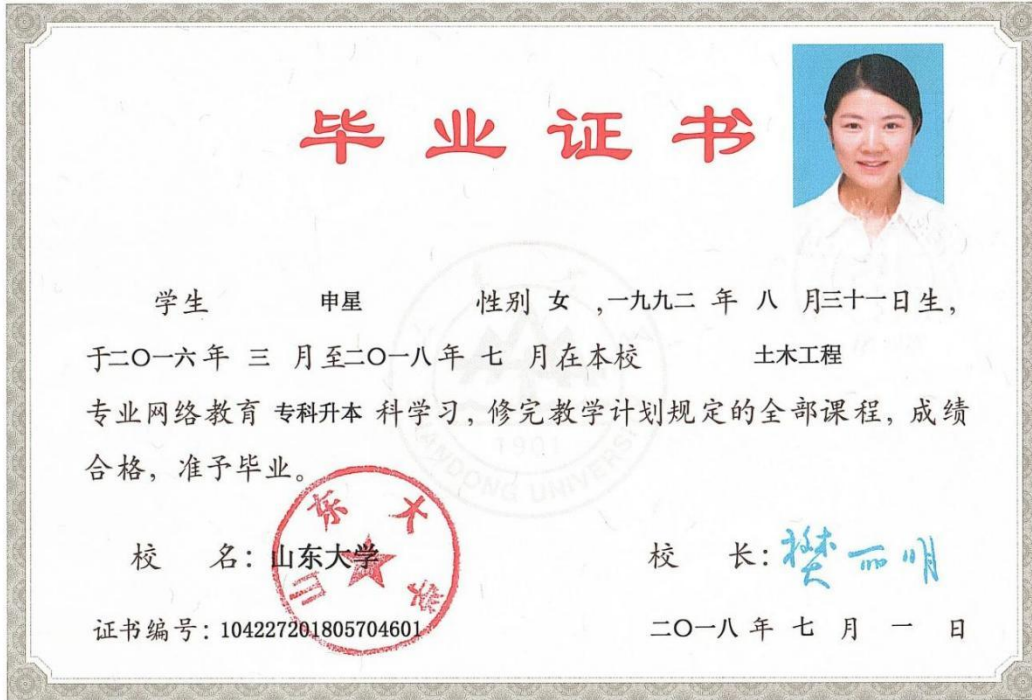 毕业证书
学生 申星 性别 女 ,一九九二 年 八 月三十一日生,
于二〇一六年 三 月至二〇一八年 七 月在本校 土木工程
专业网络教育 专科升本 科学习, 修完教学计划规定的全部课程, 成绩
合格, 准予毕业。
1901
SHANDONG UNIVERSITY
山东大学
校 名: 山东大学
校 长: 樊丽明
证书编号: 104227201805704601
二〇一八 年 七 月 一 日